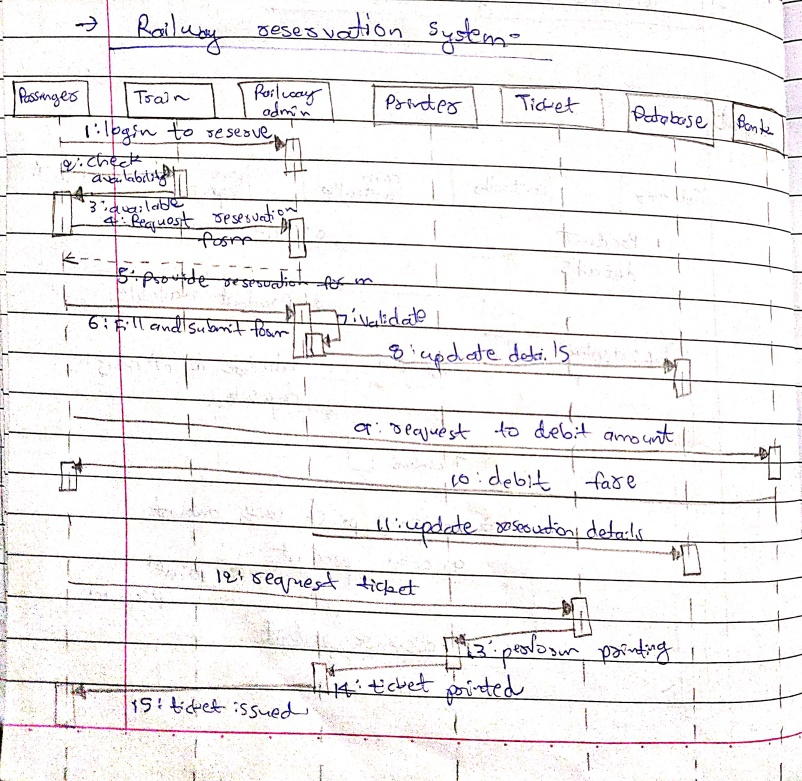 → Railway reservation system-
Passenger Train Railway admin Printer Ticket Database Bank
1: login to reserve
2: check availability
3: available
4: Request reservation form
5: provide reservation form
6: Fill and submit form
7: validate
8: update details
9: request to debit amount
10: debit fare
11: update reservation details
12: request ticket
13: perform printing
14: ticket printed
15: ticket issued